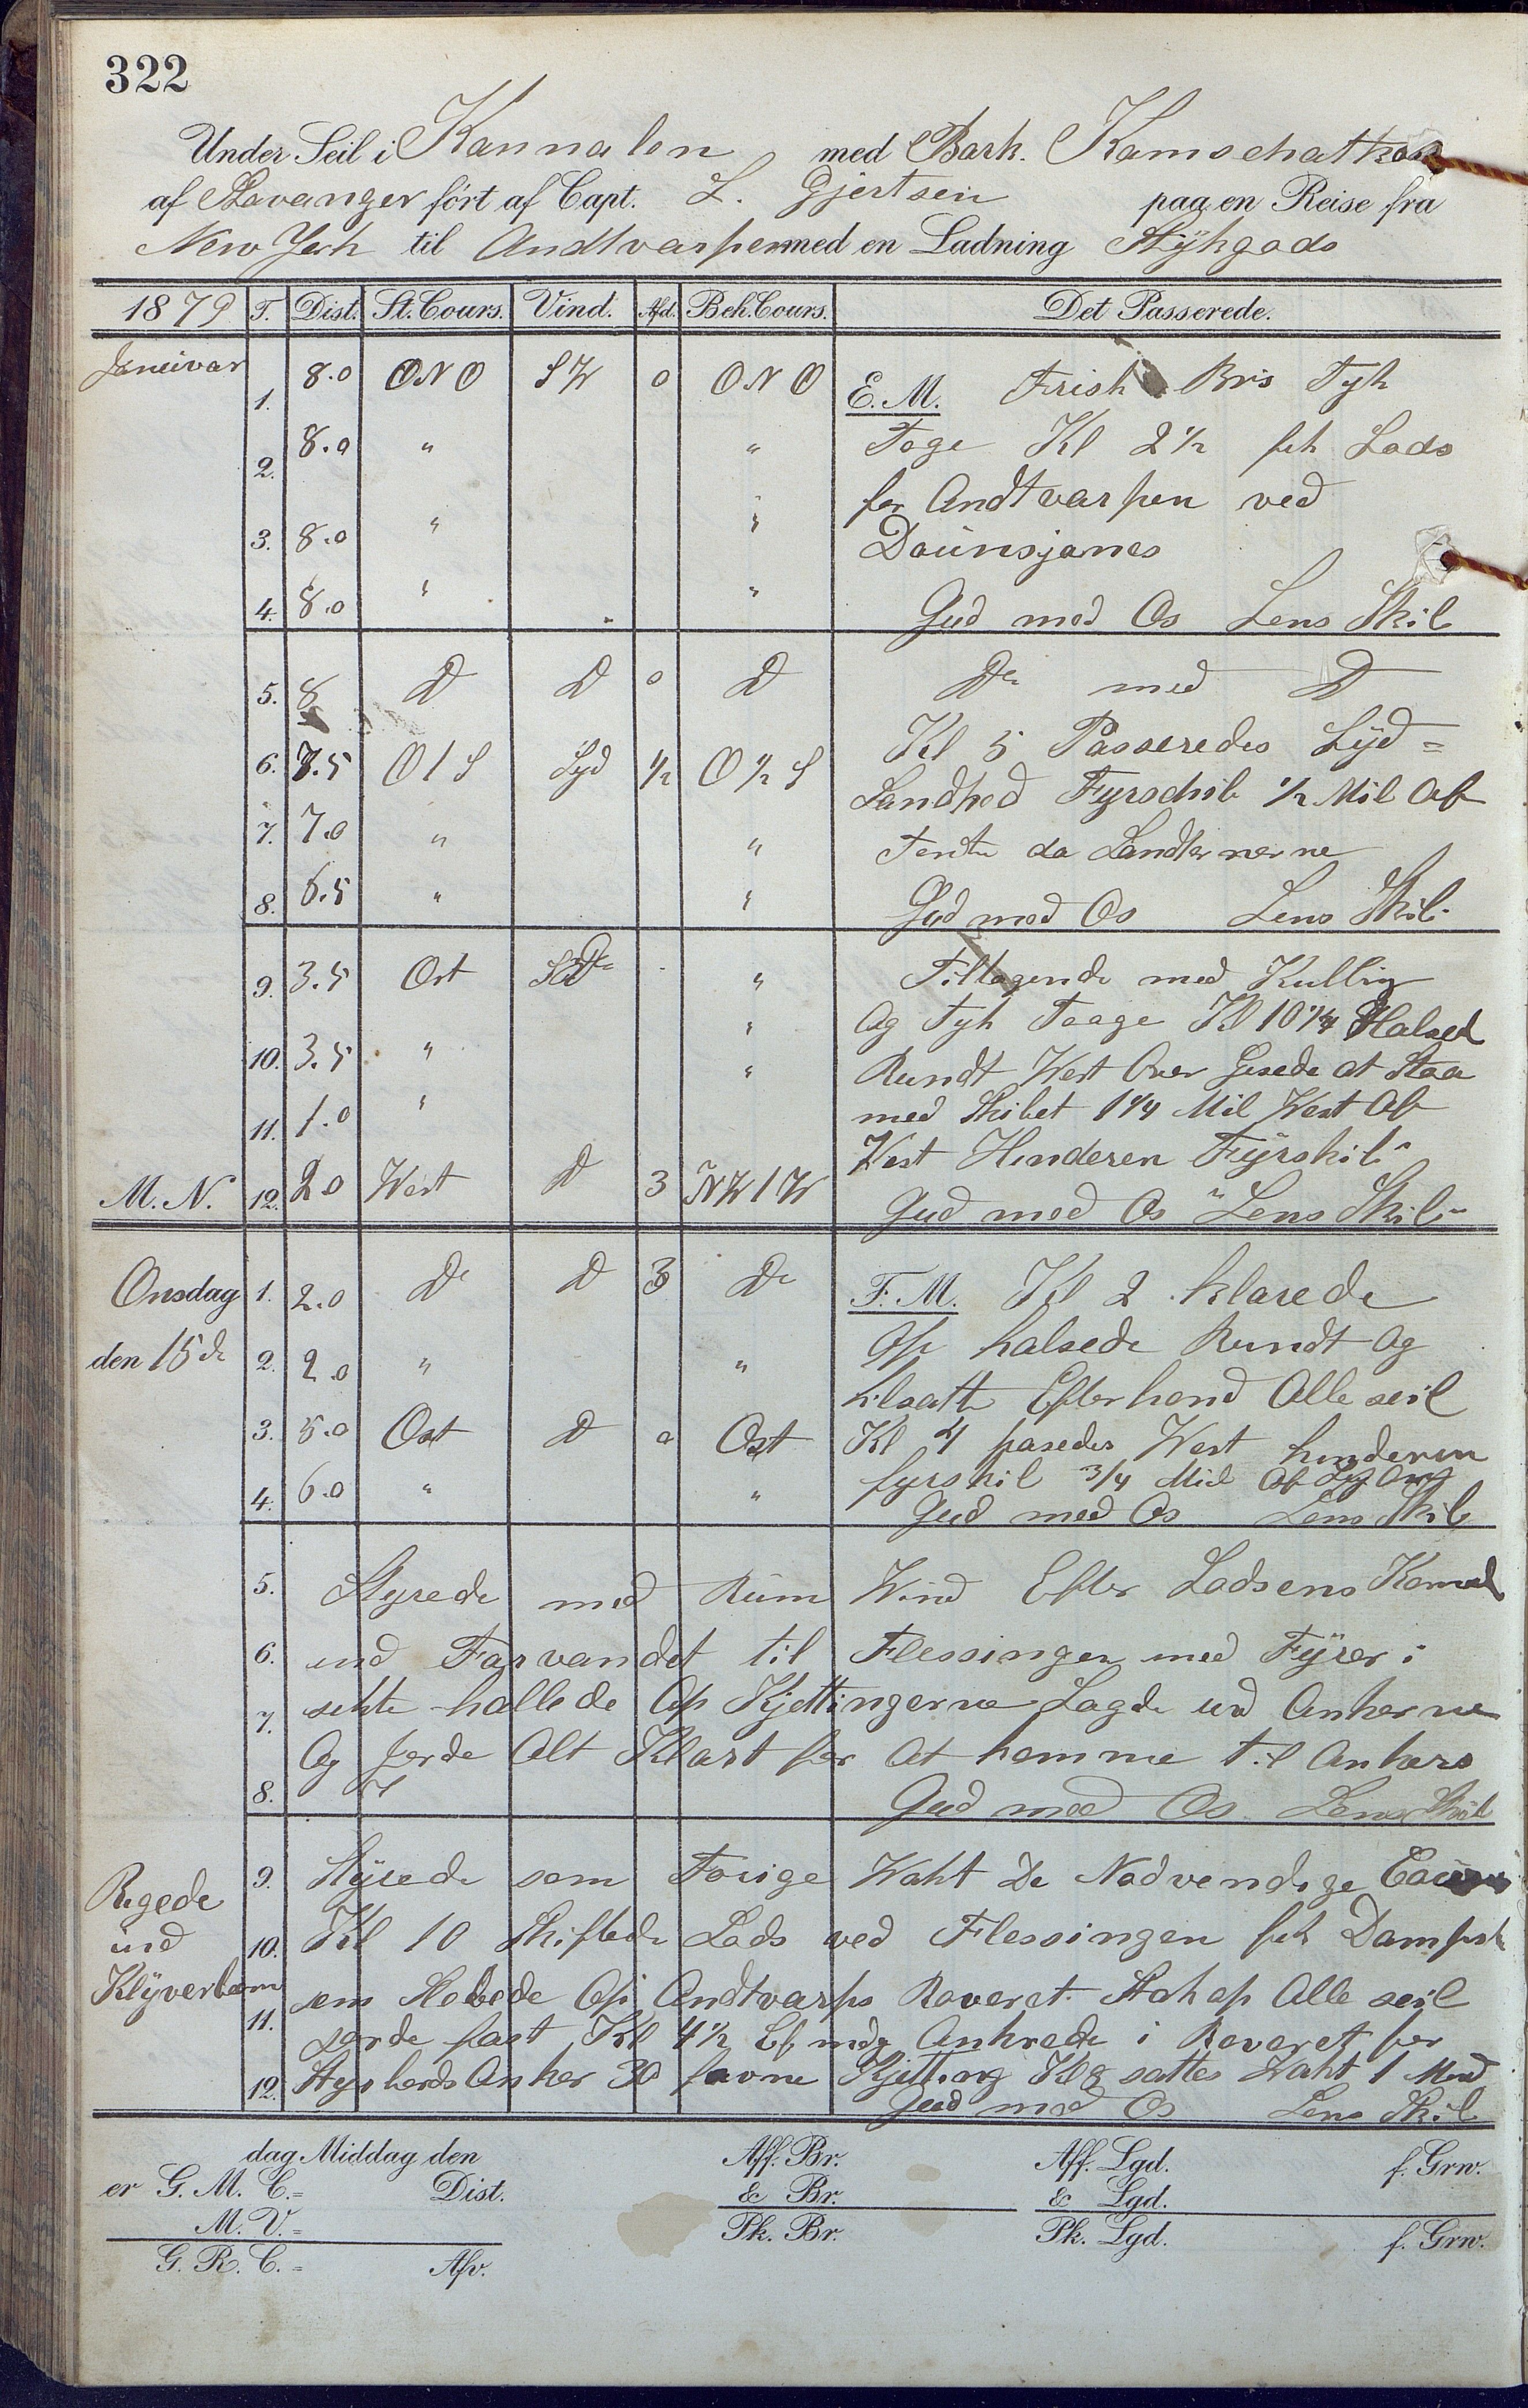 322
Under Seil i Kannalen med Bark. Kamschatka
af Stavanger ført af Capt. L. Gjertsen paa en Reise fra
New York til Andtvarpen med en Ladning Stÿkgods
1879 T. Dist. St. Cours. Vind. Afd. Beh. Cours. Det Passerede.
Januivar 1. 8.0 ONO SW 0 ONO E. M. Frisk Bris Tyk
2. 8.0 " " Toge Kl 2 1/2 fik Lods
for Andtvarpen ved
3. 8.0 " " Daünsjanes
4. 8.0 " " Gud med Os Lens Skib
5. 8 D D 0 D De med D
Kl 5 Passeredes Syd=
6. 7.5 O 1 S Syd 1/2 O 1/2 S Sandhed Fyrschib 1/2 Mil Af
7. 7.0 " " Tente da Landternerne
8. 6.5 " " Gud med Os Lens Skib
9. 3.5 Ost " Tiltagende med Kulling
10. 3.5 " " Og Tyk Taage Kl 10 1/4 Halsed
" Rundt West Over Gisede at Staa
11. 1.0 " med Skibet 1 1/4 Mil West Af
West Hinderen Fÿrskib
M. N. 12. 2.0 West D 3 NW 1 W Gud med Os "Lens Skib"
Onsdag 1. 2.0 De D 3 De F. M. Kl 2 klarede
den 15de 2. 2.0 " " Op halsede Rundt Og
tilsatte Efterhand Alle seil
3. 5.0 Ost D 0 Ost Kl 4 pasedes West hinderen
fyrskib 3/4 Mil Af
4. 6.0 " " Gud med Os Lens Skib
5. Styrede med Rüm Wind Efter Lodsens
6. ind Farvandet til Flessingen med Fÿrer i
7. sekte hallede Op Kjettingerne Lagde ud Ankerne
Og jorde Alt Klart for At komme til Ankers
8. Gud med Os Lens Skib
9. Stÿrede som Forige Waht De Nodvendige
Rigede
ind
Klÿverbom
10. Kl 10 Skiftede Lods ved Flessingen fik Dampsk
11. som Slobede Op Andtvarps Reveret Stak op Alle seil
jorde fast Kl 4 1/2 Ef mdg Ankrede i Reveret for
12. Styrbords Anker 30 favne Kjetting Kl 8 sattes Waht 1 Mand
Gud med Os Lens Skib
dag Middag den Aff. Br. Aff. Lgd. f. Grw.
er G. M. C.= Dist. & Br. & Lgd.
M. V.= Pk. Br. Pk. Lgd. f. Grw.
G. R. C.= Afv.